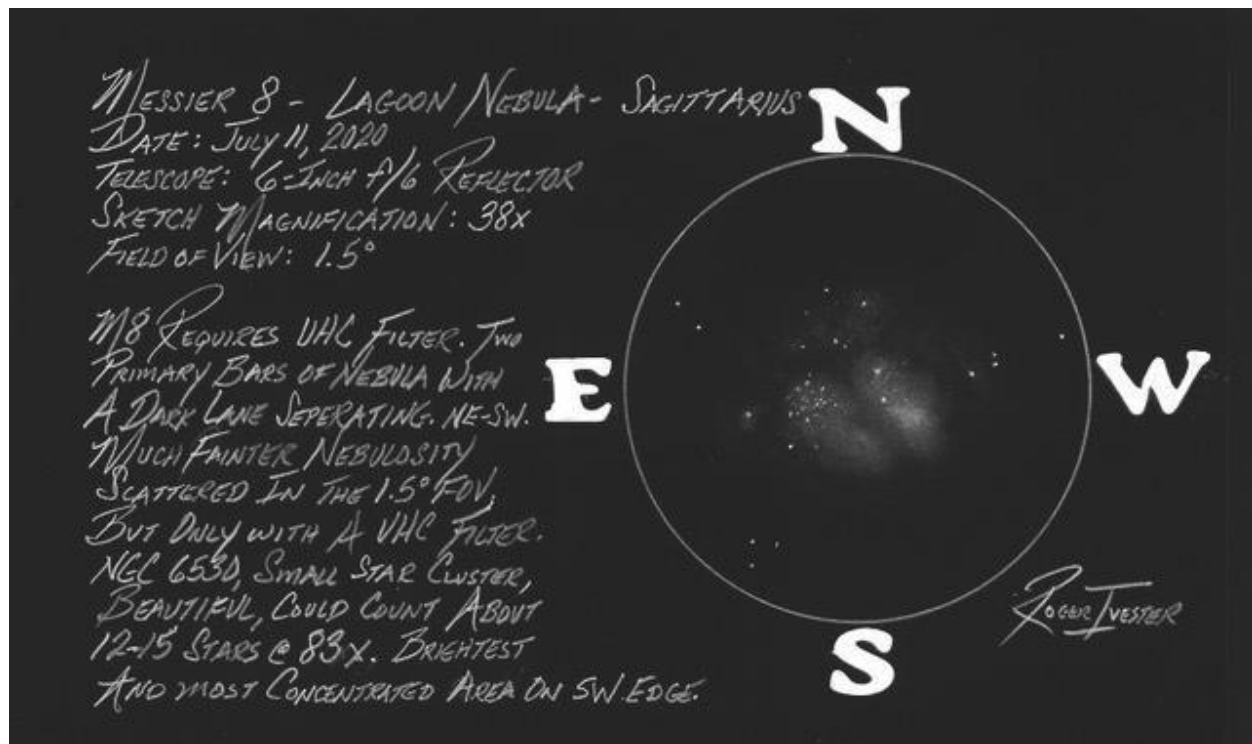 MESSIER 8 - LAGOON NEBULA - SAGITTARIUS
DATE: JULY 11, 2020
TELESCOPE: 6-INCH f/6 REFLECTOR
SKETCH MAGNIFICATION: 38x
FIELD OF VIEW: 1.5°
M8 REQUIRES UHC FILTER. TWO
PRIMARY BARS OF NEBULA WITH
A DARK LANE SEPERATING. NE-SW.
MUCH FAINTER NEBULOSITY
SCATTERED IN THE 1.5° FOV,
BUT ONLY WITH A UHC FILTER.
NGC 6530, SMALL STAR CLUSTER,
BEAUTIFUL, COULD COUNT ABOUT
12-15 STARS @ 83x. BRIGHTEST
AND MOST CONCENTRATED AREA ON SW EDGE.
N
E
W
S
ROGER IVESTER